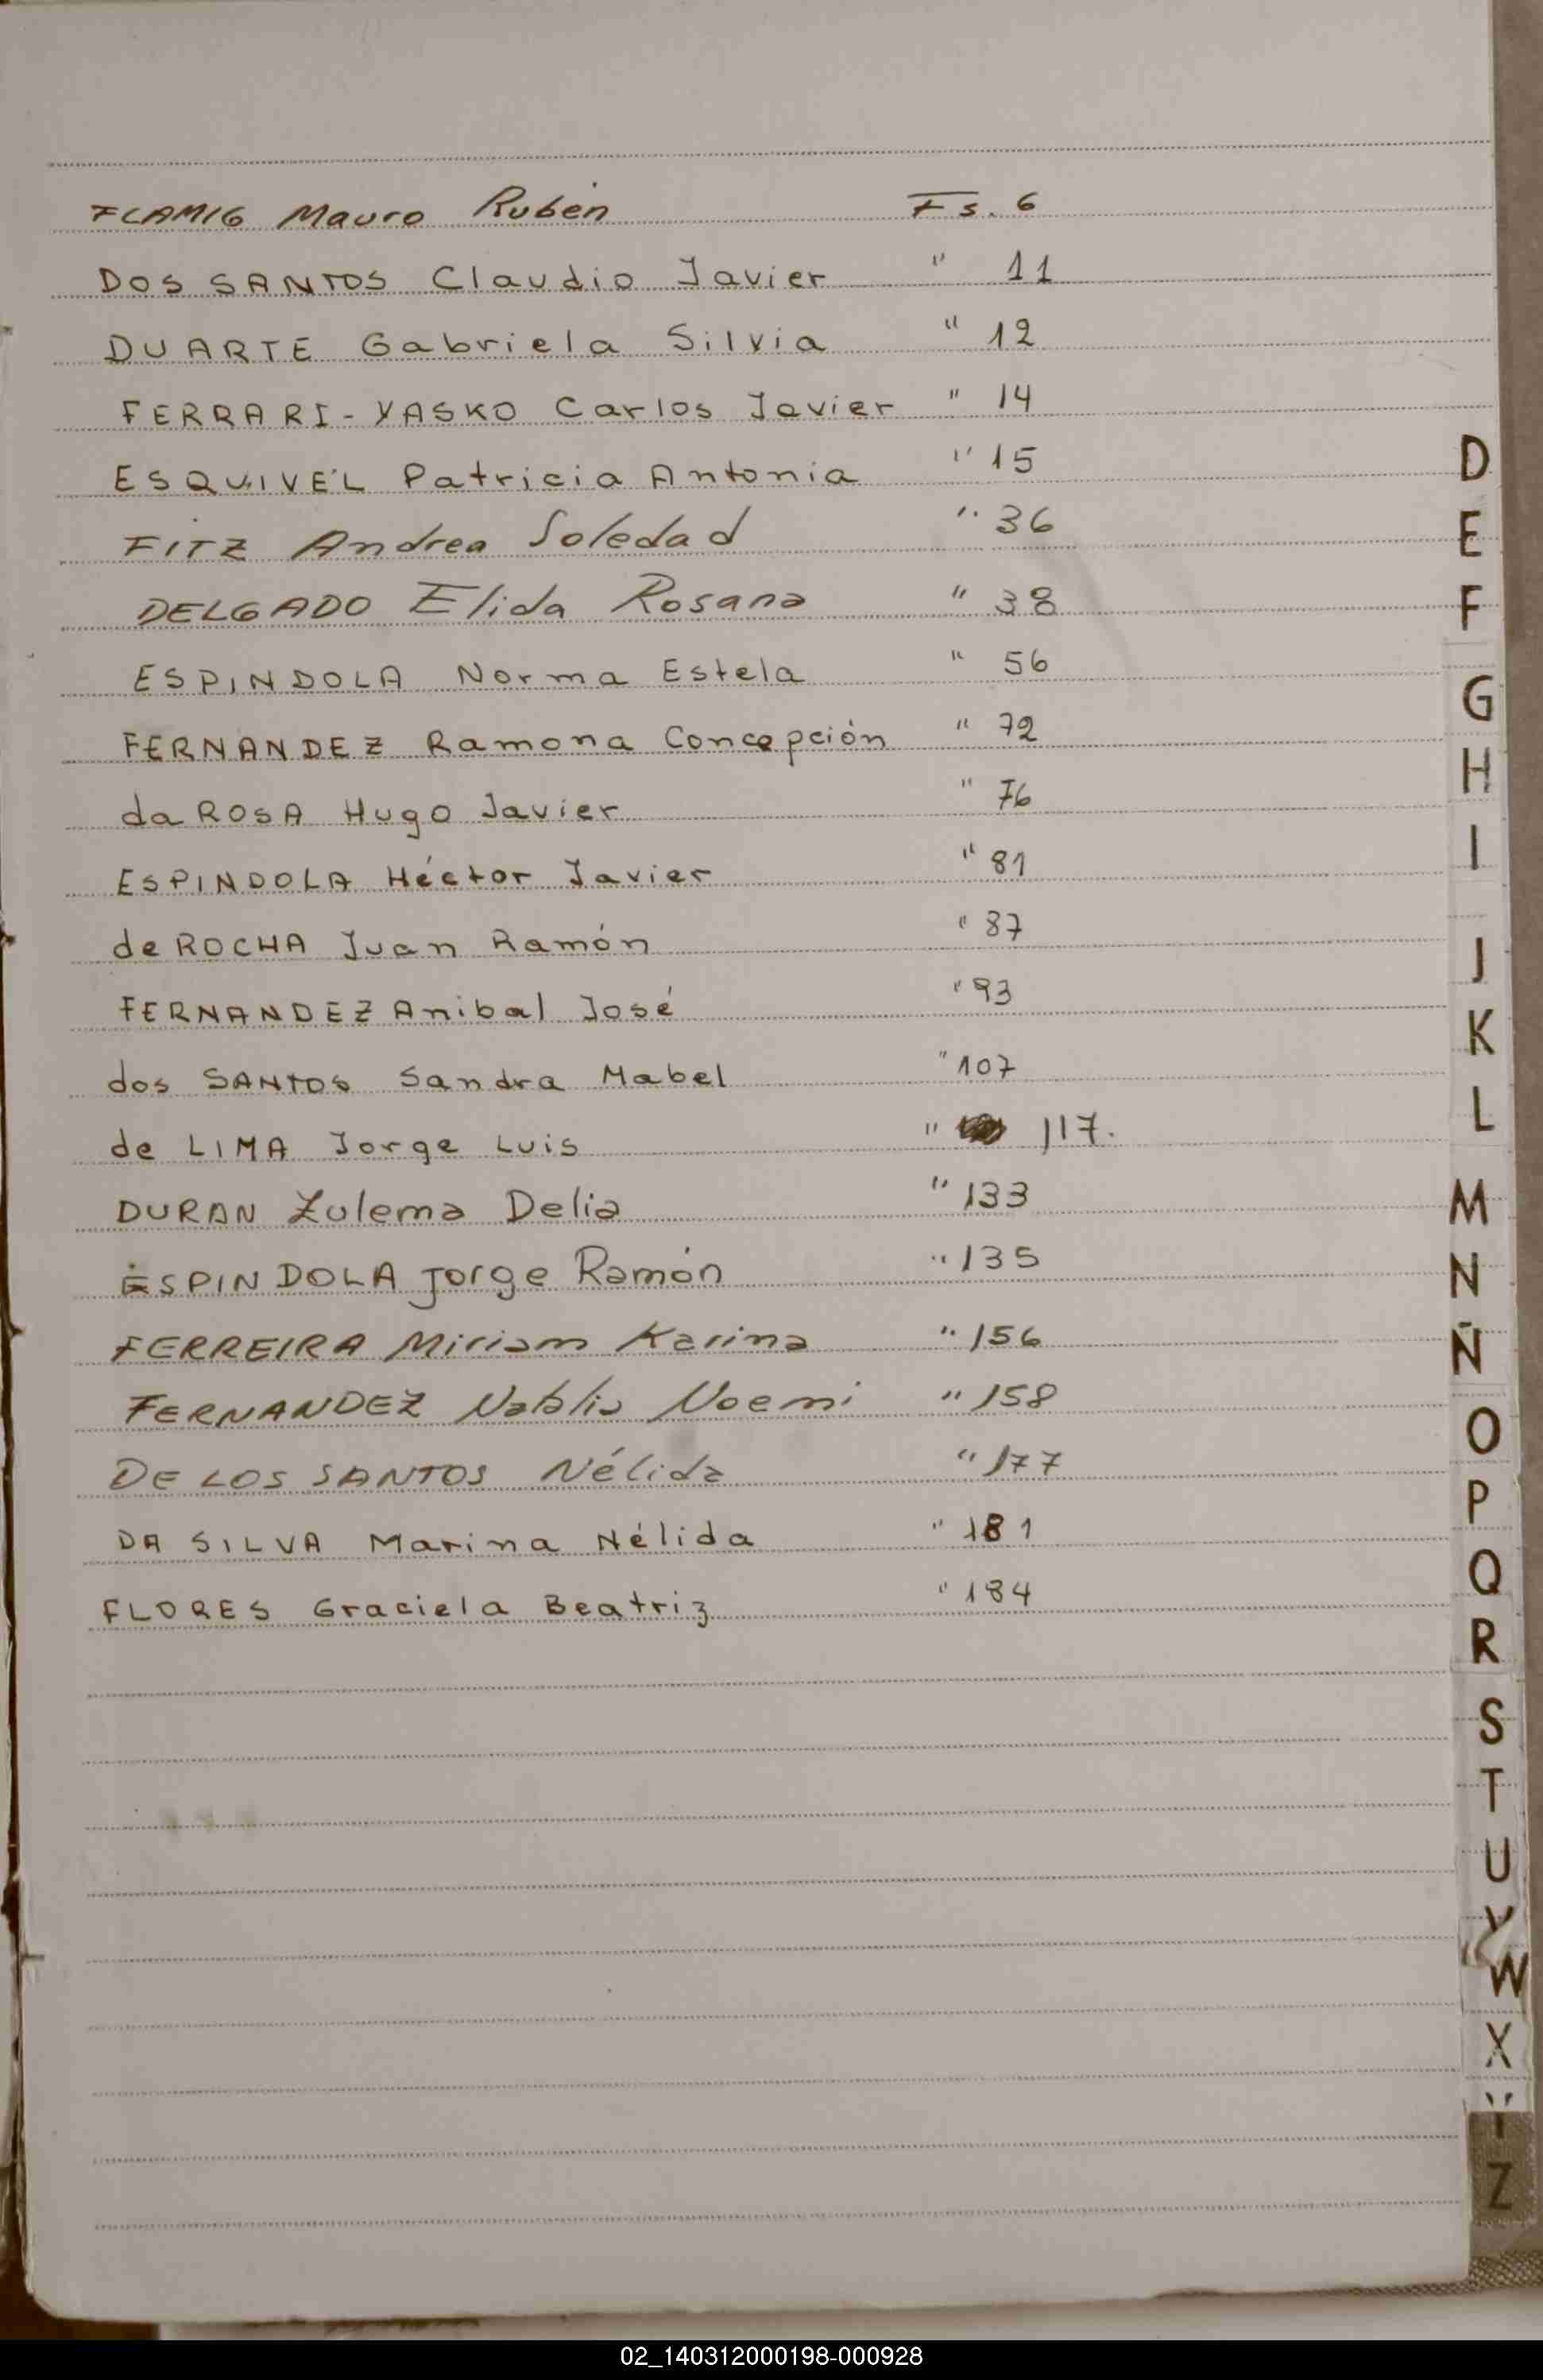 FLAMIG Mauro Rubén Fs. 6
DOS SANTOS Claudio Javier " 11
DUARTE Gabriela Silvia " 12
FERRARI-YASKO Carlos Javier " 14
ESQUIVEL Patricia Antonia " 15
FITZ Andrea Soledad " 36
DELGADO Elida Rosana " 38
ESPINDOLA Norma Estela " 56
FERNANDEZ Ramona Concepción " 72
da ROSA Hugo Javier " 76
ESPINDOLA Héctor Javier " 81
de ROCHA Juan Ramón " 87
FERNANDEZ Anibal José " 93
dos SANTOS Sandra Mabel " 107
de LIMA Jorge Luis " 117.
DURAN Zulema Delia " 133
ESPINDOLA Jorge Ramón " 135
FERREIRA Miriam Karina " 156
FERNANDEZ Natalia Noemi " 158
DE LOS SANTOS Nélida " 177
DA SILVA Marina Nélida " 181
FLORES Graciela Beatriz " 184
D
E
F
G
H
I
J
K
L
M
N
Ñ
O
P
Q
R
S
T
U
V
W
X
Y
Z
02_140312000198-000928